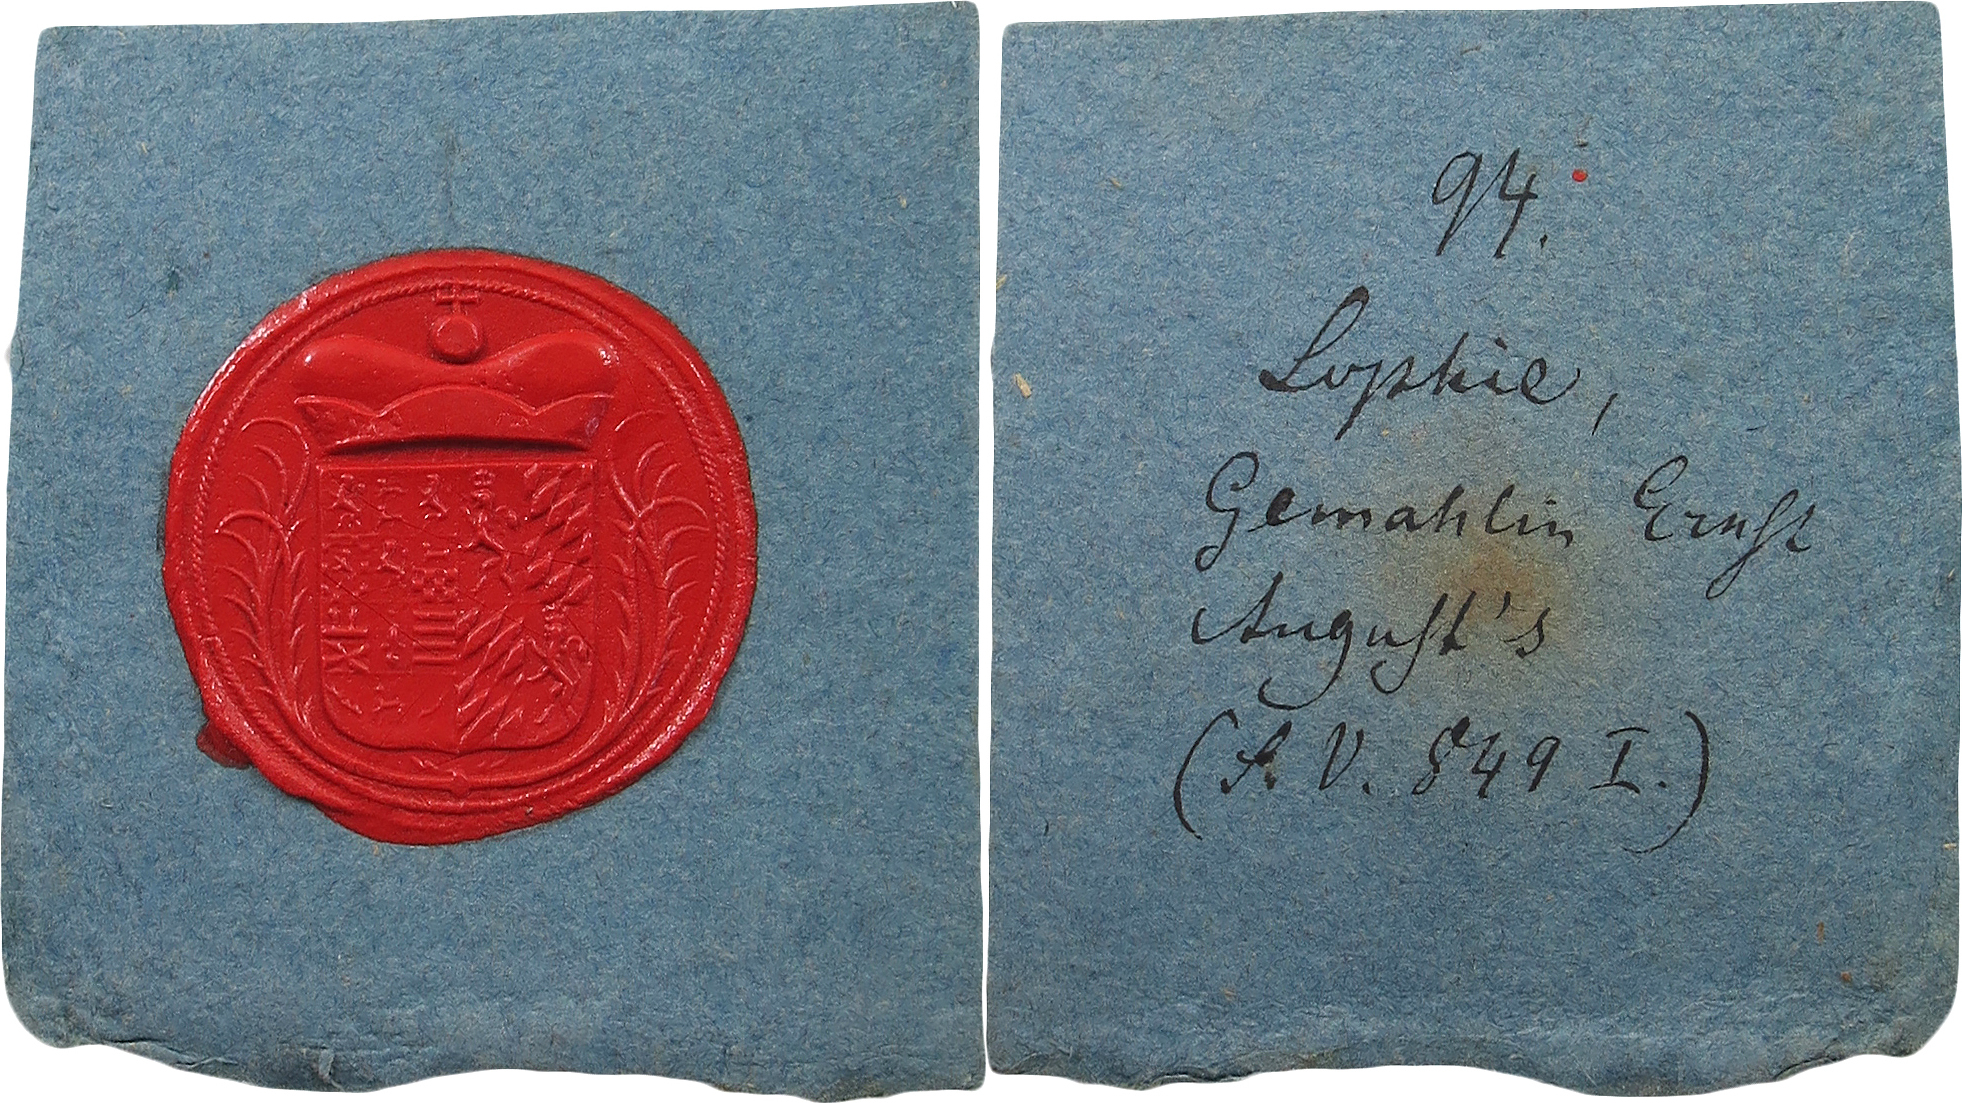 94.
Sophie,
Gemahlin Ernst
August's
(S. V. 849 I.)